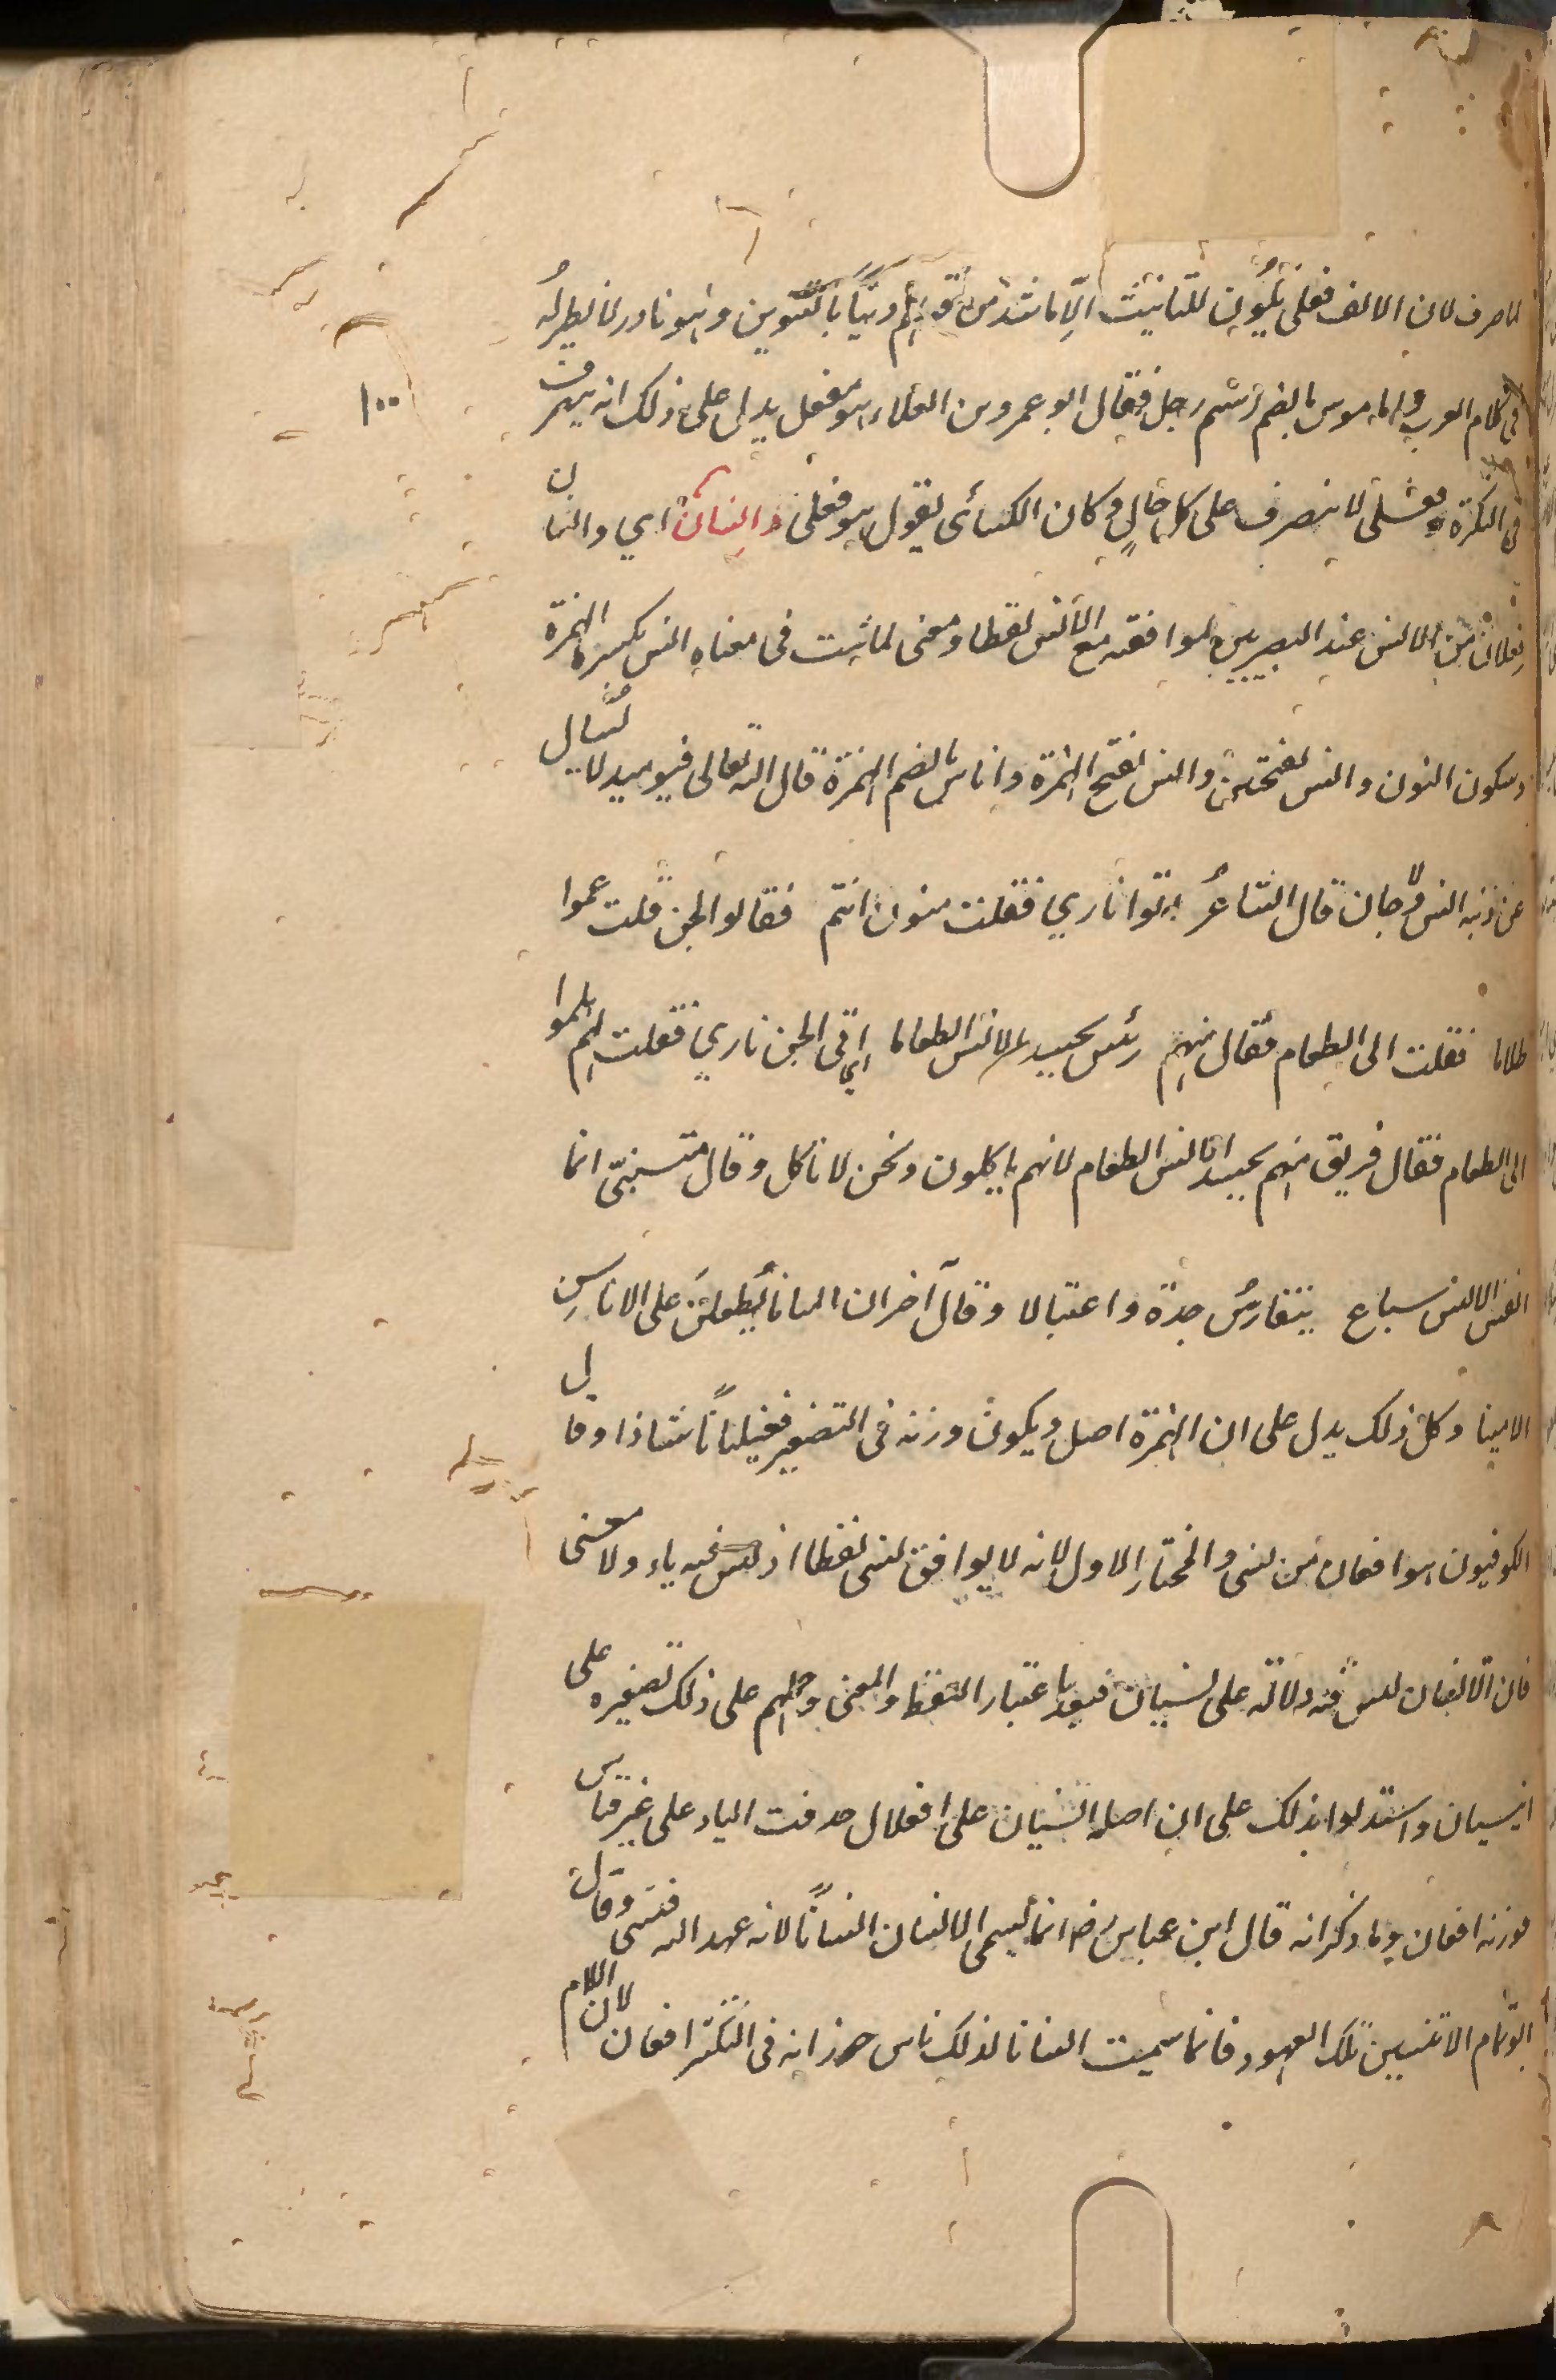 لما صرف لان الالف فعلى يكون للتانيث الّا ما شذّ من قولهم دنيًا بالتنوين وهو نادر لا نظير له
فى كلام العرب واما موسى بالضم اسم رجل فقال ابو عمرو بن العلاء هو مفعل يدل على ذلك انه يصرف
فى النكرة وفعلى لا ينصرف على كل حالٍ وكان الكسائى يقول هو فعلى وانسان اي وانسان
فعلان من الانس عند البصريين لموافقته مع الانس لفظا ومعنى لما ثبت فى معناه انس بكسر الهمزة
وسكون النون وانس بفتحتين وانس بفتح الهمزة واناس بالضم الهمزة قال الله تعالى فيومئذ لا يسال
عن ذنبه انس ولا جان قال الشاعرُ اتوا ناري فقلت منون انتم فقالوا الجن قلت عموا
ظلاما فقلت الى الطعام فقال منهم رئس يحسد الانس الطعاما اي اتى الجن ناري فقلت لهم هلموا
الى الطعام فقال فريق منهم يحسد انا انس الطعام لانهم ياكلون ونحن لا ناكل وقال متنبّى انما
انفس الانس سباع يتفارسُ جهرة واغتيالا وقال آخر ان المنايا يطّلعنَ على الاناس
الامنينا وكل ذلك يدل على ان الهمزة اصل ويكون وزنه فى التصغير فعيليانًا شاذا وقال
الكوفيون هو افعان من نسى والمختار الاول لانه لا يوافق نسى لفظا اذ ليس فيه ياء ولا معنى
فان الانسان ليس فيه دلالة على نسيان فبعد باعتبار اللفظ والمعنى وحملهم على ذلك تصغيره على
انيسيان واستدلوا بذلك على ان اصله انسيان على افعلال حذفت الياء على غير قياس
فوزنه افعان وما ذكر انه قال ابن عباس رضـ انما يسمى الانسان انسانًا لانه عهد اليه فنسى وقال
ابو تمام لا تنسين تلك العهود فانما سميت انسانا لذلك ناس وزانه فى التكثر افعان لان اللام
١٠٠